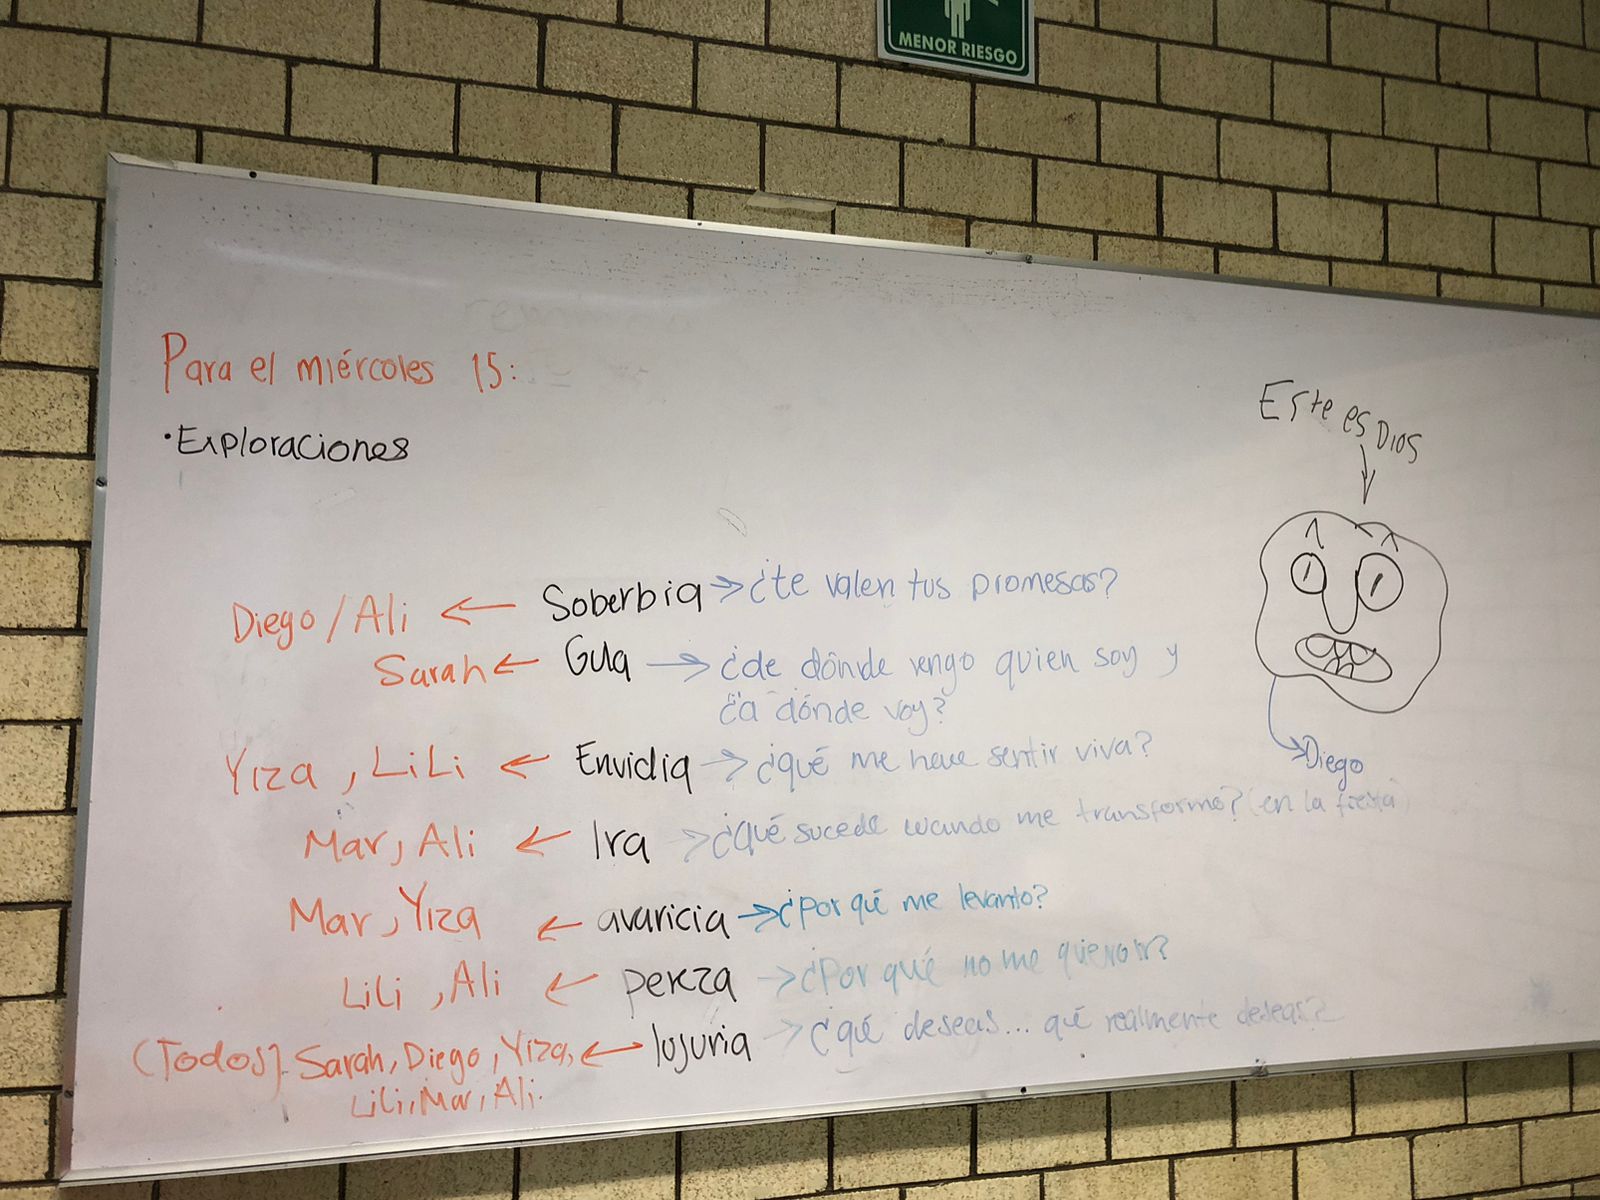 MENOR RIESGO
Para el miércoles 15:
• Exploraciones
Este es DIOS
Diego / Ali ← Soberbia → ¿te valen tus promesas?
Sarah ← Gula → ¿de dónde vengo quien soy y
¿a dónde voy?
Yiza, LiLi ← Envidia → ¿qué me hace sentir viva?
Diego
Mar, Ali ← Ira → ¿Qué sucede cuando me transformo? (en la fiesta)
Mar, Yiza ← avaricia → ¿Por qué me levanto?
LiLi, Ali ← pereza → ¿Por qué no me quiero ir?
(Todos). Sarah, Diego, Yiza, ← lujuria → ¿qué deseas... qué realmente deseas?
LiLi, Mar, Ali.